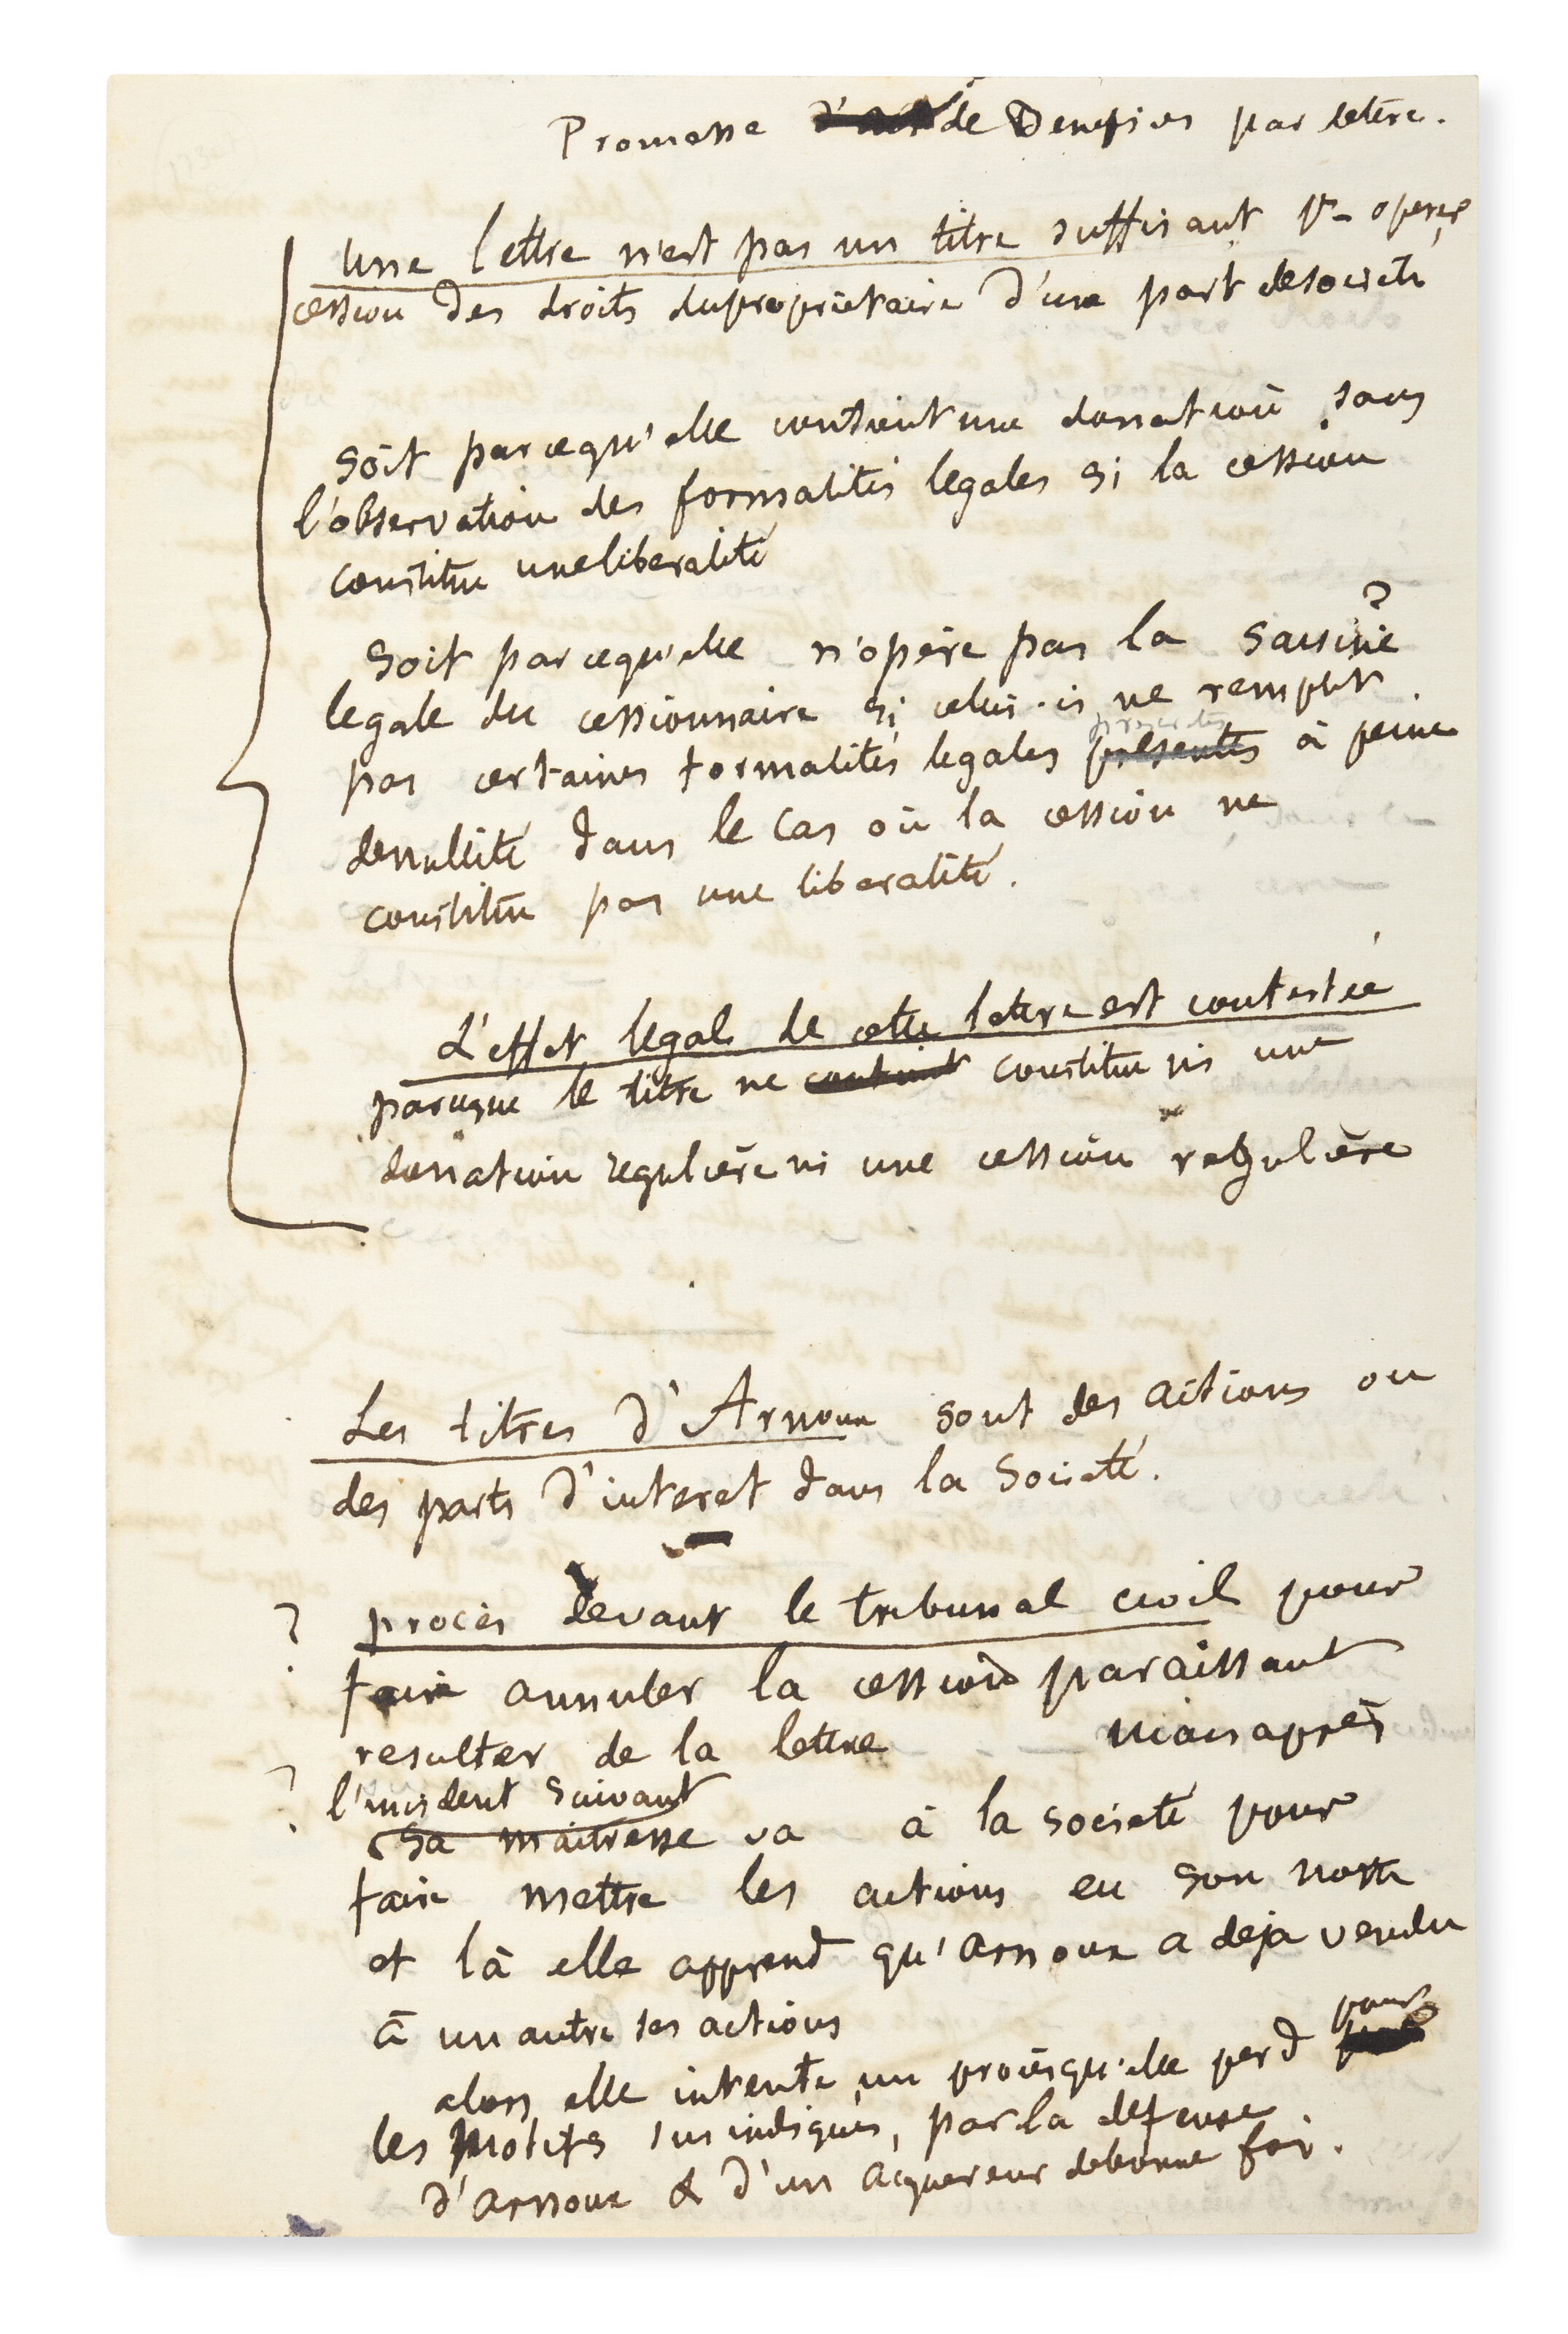 Promesse de Benefices par lettre.
Une lettre n'est pas un titre suffisant pr opérer
cession des droits du proprietaire d'une part de société
Soit parcequ'elle contient une donation sans
l'observation des formalités legales si la cession
constitue une liberalité
?
Soit parcequ'elle n'opère pas la saisine
legale du cessionnaire si celui-ci ne remplit
prescrites
pas certaines formalités legales presentes à peine
de nullité dans le cas où la cession ne
constitue pas une liberalité.
L'effet légal de cette lettre est contestée
parceque le titre ne contient constitue ni une
donation regulière ni une cession regulière
Les titres d'Arnoux sont des actions ou
des parts d'interet dans la Société.
? procès devant le tribunal civil pour
faire annuler la cession paraissant
resulter de la lettre mais après
? l'incident suivant
Sa maitresse va à la société pour
faire mettre les actions en son nom
et là elle apprend qu'Arnoux a deja vendu
à un autre ses actions
pour
alors elle intente un procès qu'elle perd
les motifs sus indiqués, par la defense
d'Arnoux & d'un acquereur de bonne foi.